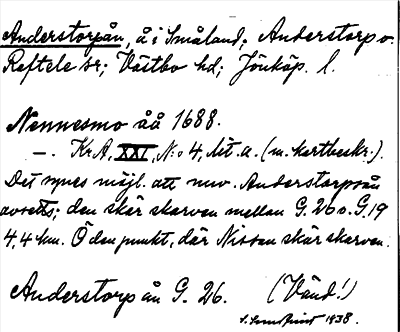 Anderstorpån, å i Småland; Anderstorp o.
Reftele sr; Västbo hd; Jönköp. l.
Nennesmo åå 1688.
–. Kr.A, XXI, N:o 4, lit. a. (m. kartbeskr.).
Det synes möjl. att nuv. Anderstorpsån
avsetts; den skär skarven mellan G. 26 o. G. 19
4,4 km. Ö den punkt, där Nissan skär skarven.
Anderstorp ån G. 26. (Vänd!)
1938.